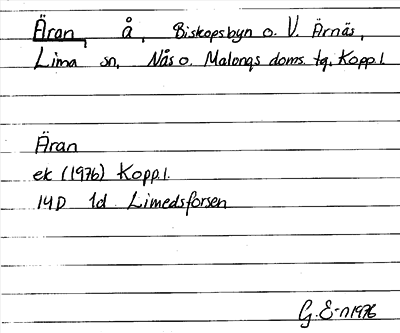 Äran, å, Biskopsbyn o. V. Ärnäs,
Lima sn, Nås o. Malungs doms. tg, Kopp.l.
Äran
ek (1976) Kopp.l.
14D 1d Limedsforsen
G.E-n 1976